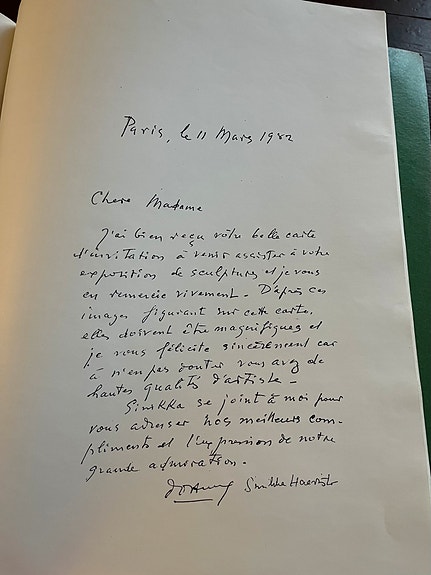 Paris, le 11 Mars 1982
Chere Madame
J'ai bien reçu vôtre belle carte
d'invitation à venir assister à vôtre
exposition de sculptures et je vous
en remercie vivement. D'après ces
images figurant sur cette carte,
elles doivent être magnifiques et
je vous félicite sincèrement car
à n'en pas douter vous avez de
hautes qualités d'artiste -
Sinikka se joint à moi pour
vous adresser nos meilleurs com-
pliments et l'expression de notre
grande admiration.
Sinikka